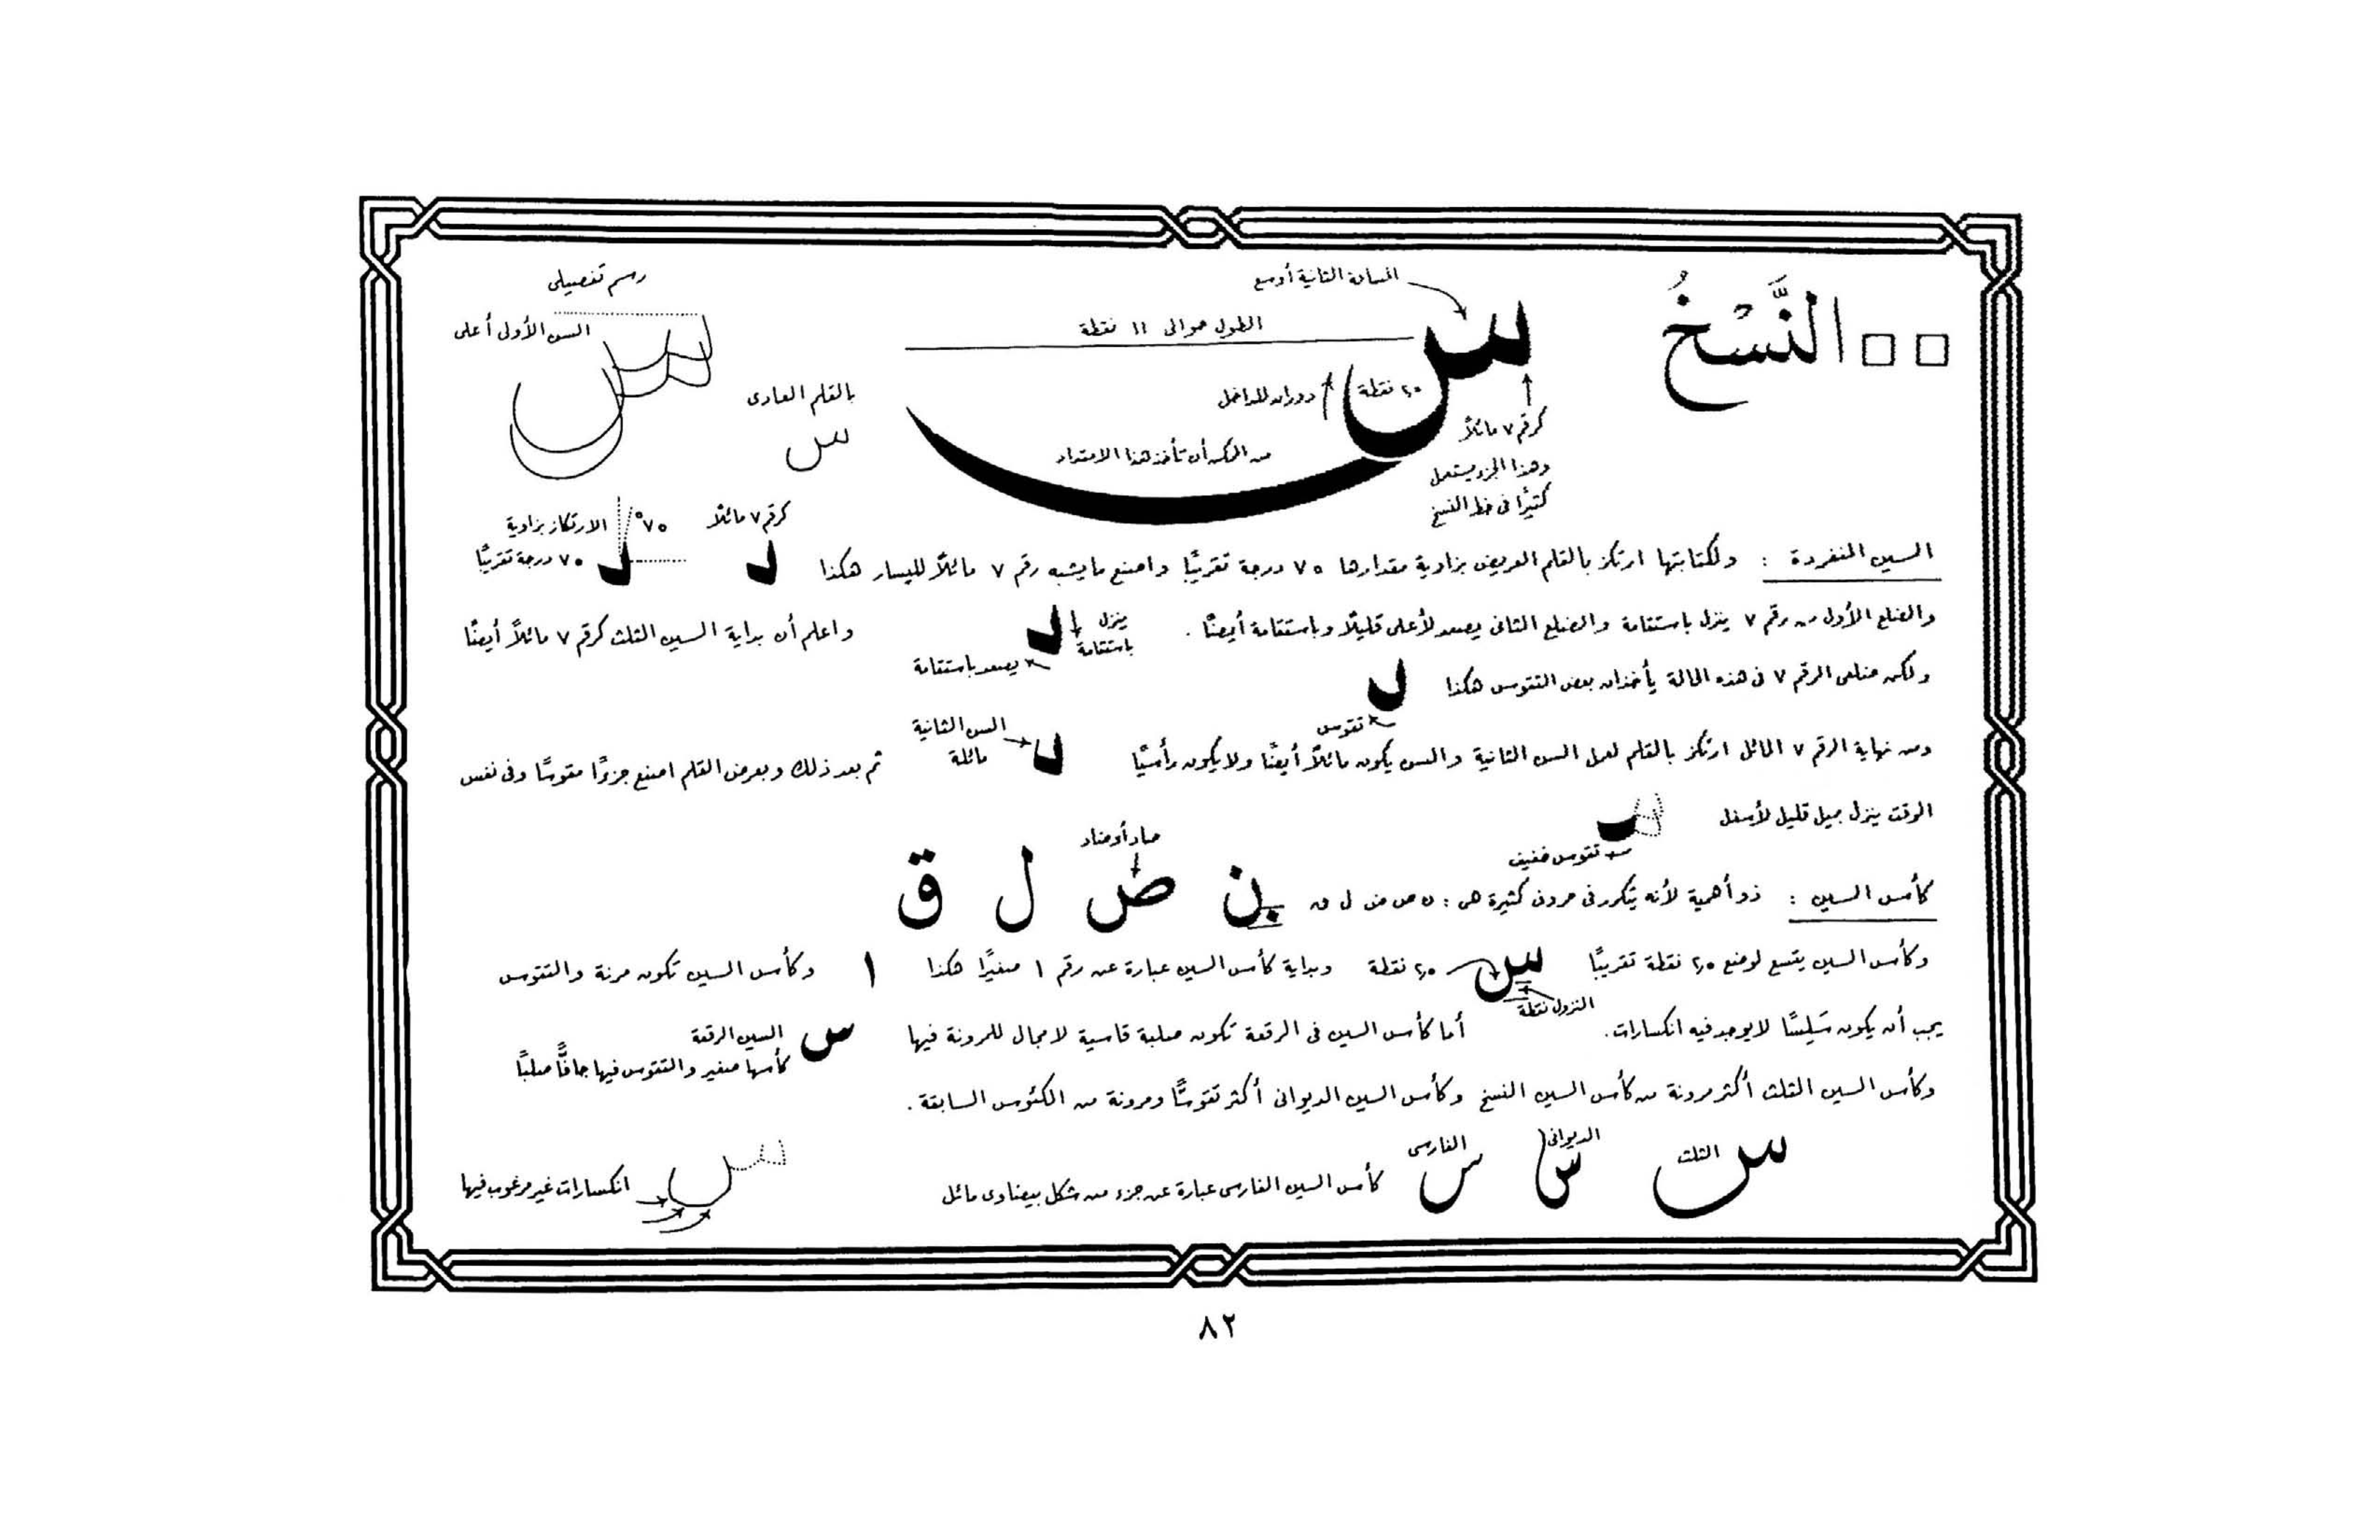 النَّسْخُ
المسافة الثانية أوسع
س
الطول حوالى ١١ نقطة
٢٫٥ نقطة
دوران للداخل
من الممكن أن تأخذ هذا الامتداد
كرقم ٧ مائلاً
وهذا الجزء يستعمل
كثيرًا فى خط النسخ
رسم تفصيلى
السن الأولى أعلى
بالقلم العادى
س
كرقم ٧ مائلاً
٧٠°
الارتكاز بزاوية
٧٠ درجة تقريبًا
السين المنفردة : ولكتابتها ارتكز بالقلم العريض بزاوية مقدارها ٧٠ درجة تقريبًا واصنع ما يشبه رقم ٧ مائلاً لليسار هكذا
والضلع الأول من رقم ٧ ينزل باستقامة والضلع الثانى يصعد لأعلى قليلاً وباستقامة أيضًا .
ينزل باستقامة
يصعد باستقامة
واعلم أن بداية السين الثلث كرقم ٧ مائلاً أيضًا
ولكن ضلعى الرقم ٧ فى هذه الحالة يأخذان بعض التقوس هكذا
تقوس
ومن نهاية الرقم ٧ المائل ارتكز بالقلم لعمل السن الثانية والسن يكون مائلاً أيضًا ولا يكون رأسيًا
السن الثانية
مائلة
ثم بعد ذلك وبعرض القلم اصنع جزءًا مقوسًا وفى نفس
الوقت ينزل بميل قليل لأسفل
تقوس خفيف
صاد أو ضاد
كأس السين : ذو أهمية لأنه يتكرر فى حروف كثيرة هى : ن ص ض ل ق
ن ض ل ق
وكأس السين يتسع لوضع ٢٫٥ نقطة تقريبًا س ٢٫٥ نقطة وبداية كأس السين عبارة عن رقم ١ صغيرًا هكذا ١ وكأس السين تكون مرنة والتقوس
النزول نقطة
يجب أن يكون سَلِسًا لا يوجد فيه انكسارات. أما كأس السين فى الرقعة تكون صلبة قاسية لا مجال للمرونة فيها س
السين الرقعة
كأسها صغير والتقوس فيها جافًّا صلبًا
وكأس السين الثلث أكثر مرونة من كأس السين النسخ وكأس السين الديوانى أكثر تقوسًا ومرونة من الكئوس السابقة .
الثلث س
الديوانى س
الفارسى س
كأس السين الفارسى عبارة عن جزء من شكل بيضاوى مائل
س
انكسارات غير مرغوب فيها
٨٢